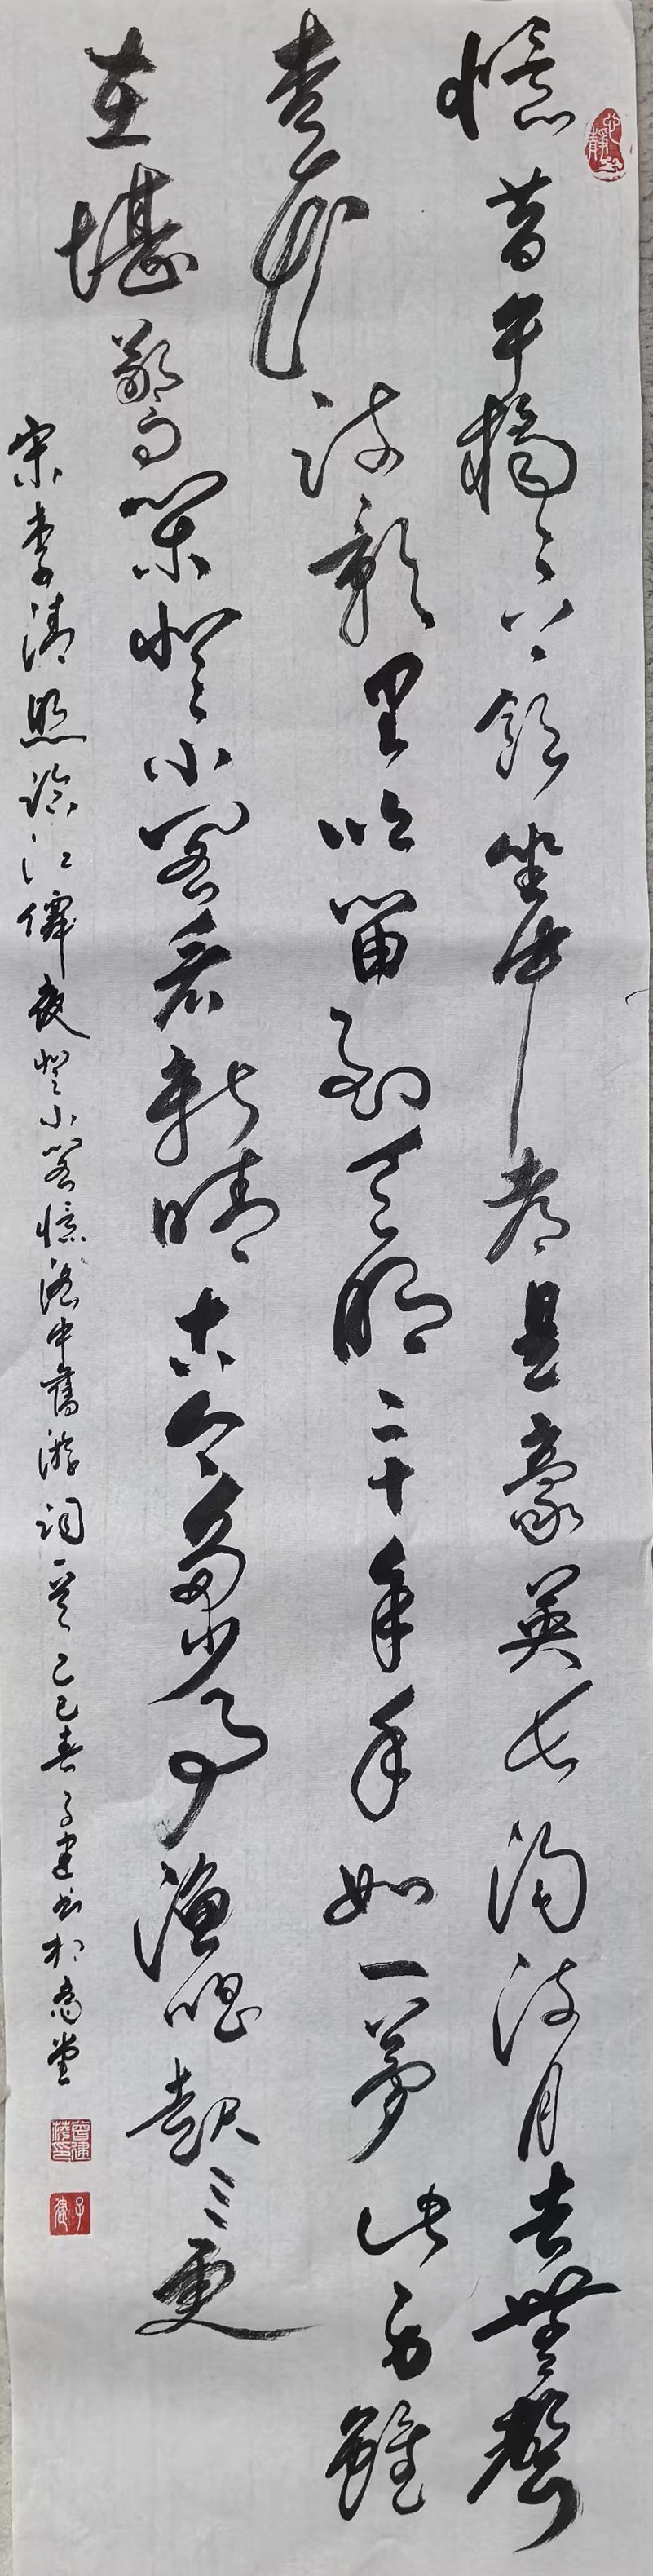 憶昔午橋〻上飲坐中都是豪英長溝流月去無聲
杏花疏影里吹笛到天明二十余年如一夢此身雖
在堪驚閑登小閣看新晴古今多少事漁唱起三更
宋李清照臨江僊夜登小閣憶洛中舊游詞一首乙巳春子建書於堂
子建